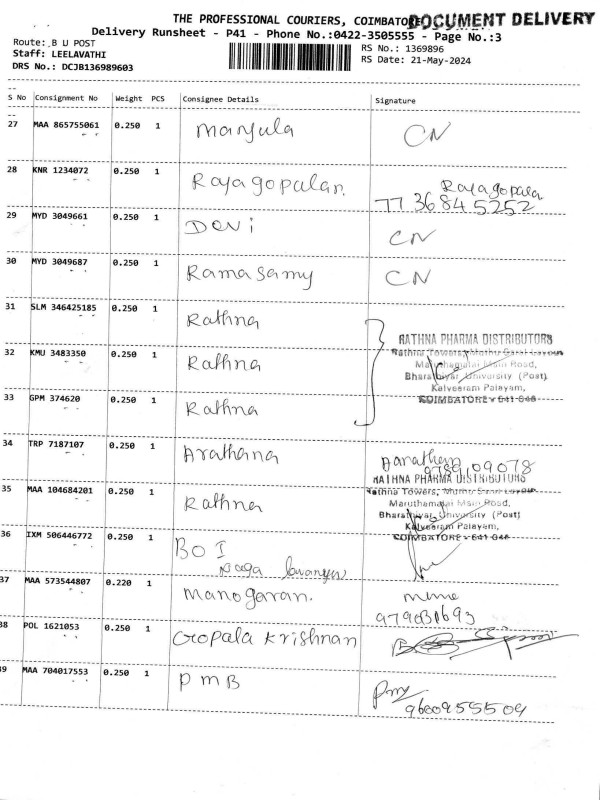 THE PROFESSIONAL COURIERS, COIMBATORE
DOCUMENT DELIVERY
Delivery Runsheet - P41 - Phone No.:0422-3505555 - Page No.:3
Route: B U POST
Staff: LEELAVATHI
DRS No.: DCJB136989603
RS No.: 1369896
RS Date: 21-May-2024
S No Consignment No Weight PCS Consignee Details Signature
27 MAA 865755061 0.250 1 Manjula CN
28 KNR 1234072 0.250 1 Rajagopalan. Rajagopala
77 36845252
29 MYD 3049661 0.250 1 Devi CN
30 MYD 3049687 0.250 1 Ramasamy CN
31 SLM 346425185 0.250 1 Rathna
RATHNA PHARMA DISTRIBUTORS
Rathna Towers, Muthu Layout
32 KMU 3483350 0.250 1 Rathna
Maruthamalai Main Road,
Bharathiyar University (Post)
Kalveeram Palayam,
COIMBATORE - 641 046
33 GPM 374620 0.250 1 Rathna
34 TRP 7187107 0.250 1 Arathana
09078
RATHNA PHARMA DISTRIBUTORS
35 MAA 104684201 0.250 1 Rathna
Rathna Towers, Muthu Layout
Maruthamalai Main Road,
Bharathiyar University (Post)
Kalveeram Palayam,
COIMBATORE - 641 046
36 IXM 506446772 0.250 1 BOI
Naga
37 MAA 573544807 0.220 1 Manogaran.
38 POL 1621053 0.250 1 Gopala Krishnan
39 MAA 704017553 0.250 1 PMB
9600955504